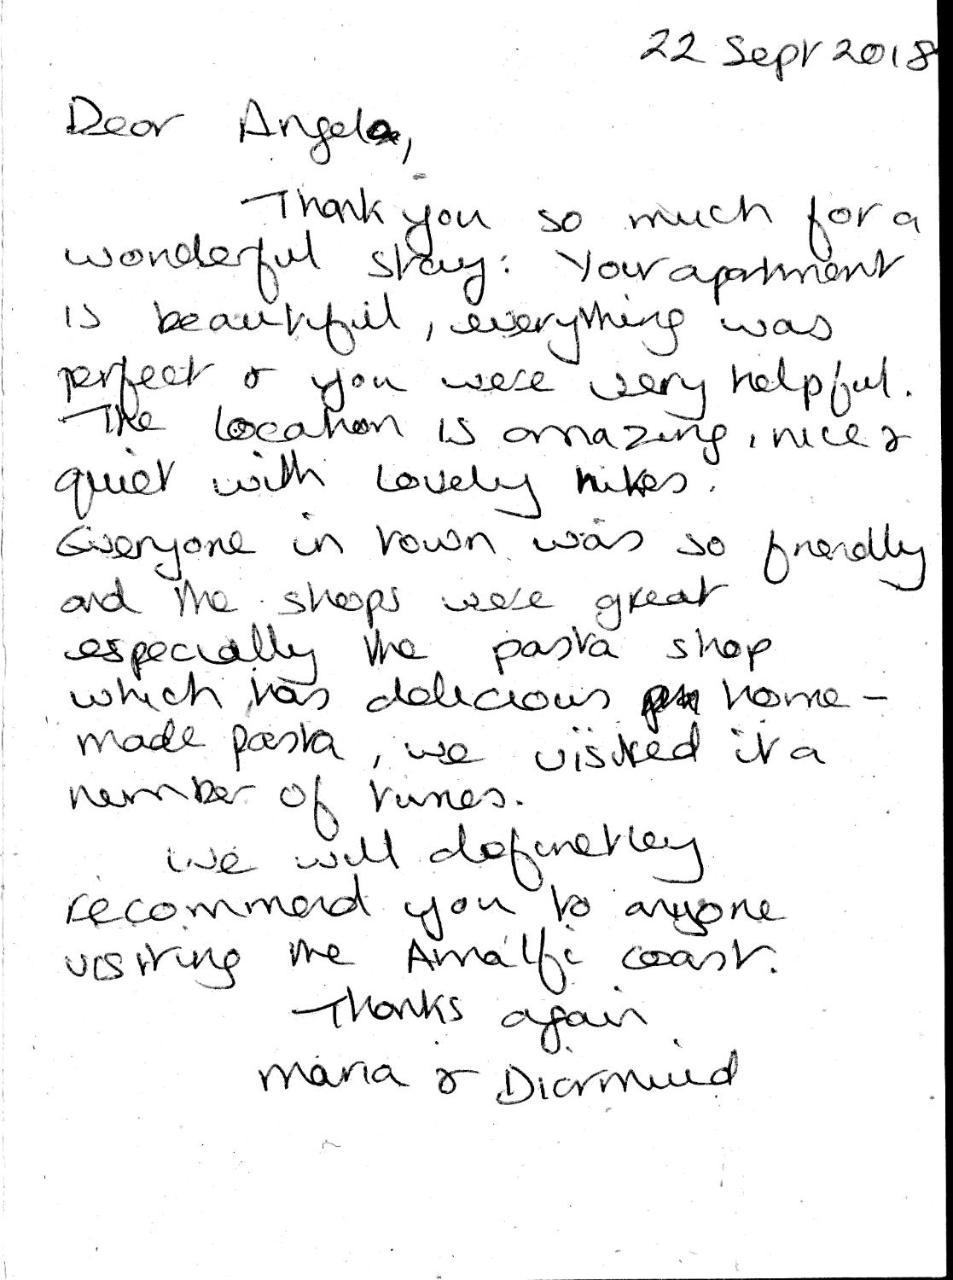 22 Sept 2018
Dear Angela,
Thank you so much for a
wonderful stay. Your apartment
is beautiful, everything was
perfect & you were very helpful.
The location is amazing, nice &
quiet with lovely hikes.
Everyone in town was so friendly
and the shops were great
especially the pasta shop
which has delicious home-
made pasta, we visited it a
number of times.
We will definetley
recommend you to anyone
visiting the Amalfi coast.
Thanks again
Maria & Diarmuid